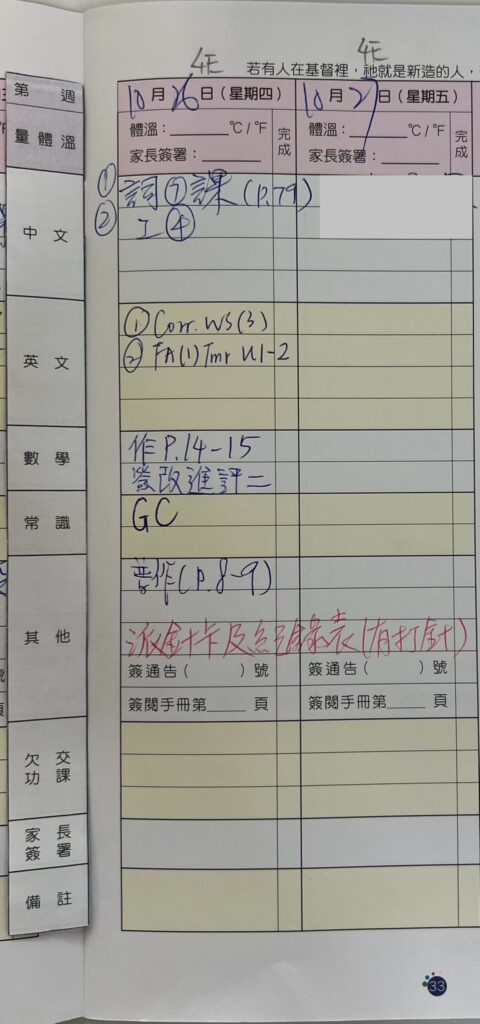 4E 4E
若有人在基督裡，祂就是新造的人，
第 週
10月26日（星期四） 10月27日（星期五）
量體溫
體溫：______℃/℉ 完成 體溫：______℃/℉ 完成
家長簽署：______ 家長簽署：______
中文
① 詞⑦課(P.79)
② 工④
英文
① Corr. WS(3)
② FA(1) Tmr U1-2
數學
作P.14-15
簽改進評二
常識
GC
其他
普作(P.8-9)
派針卡及紀錄表(有打針)
簽通告（ ）號 簽通告（ ）號
簽閱手冊第____頁 簽閱手冊第____頁
欠交功課
家長簽署
備註
33